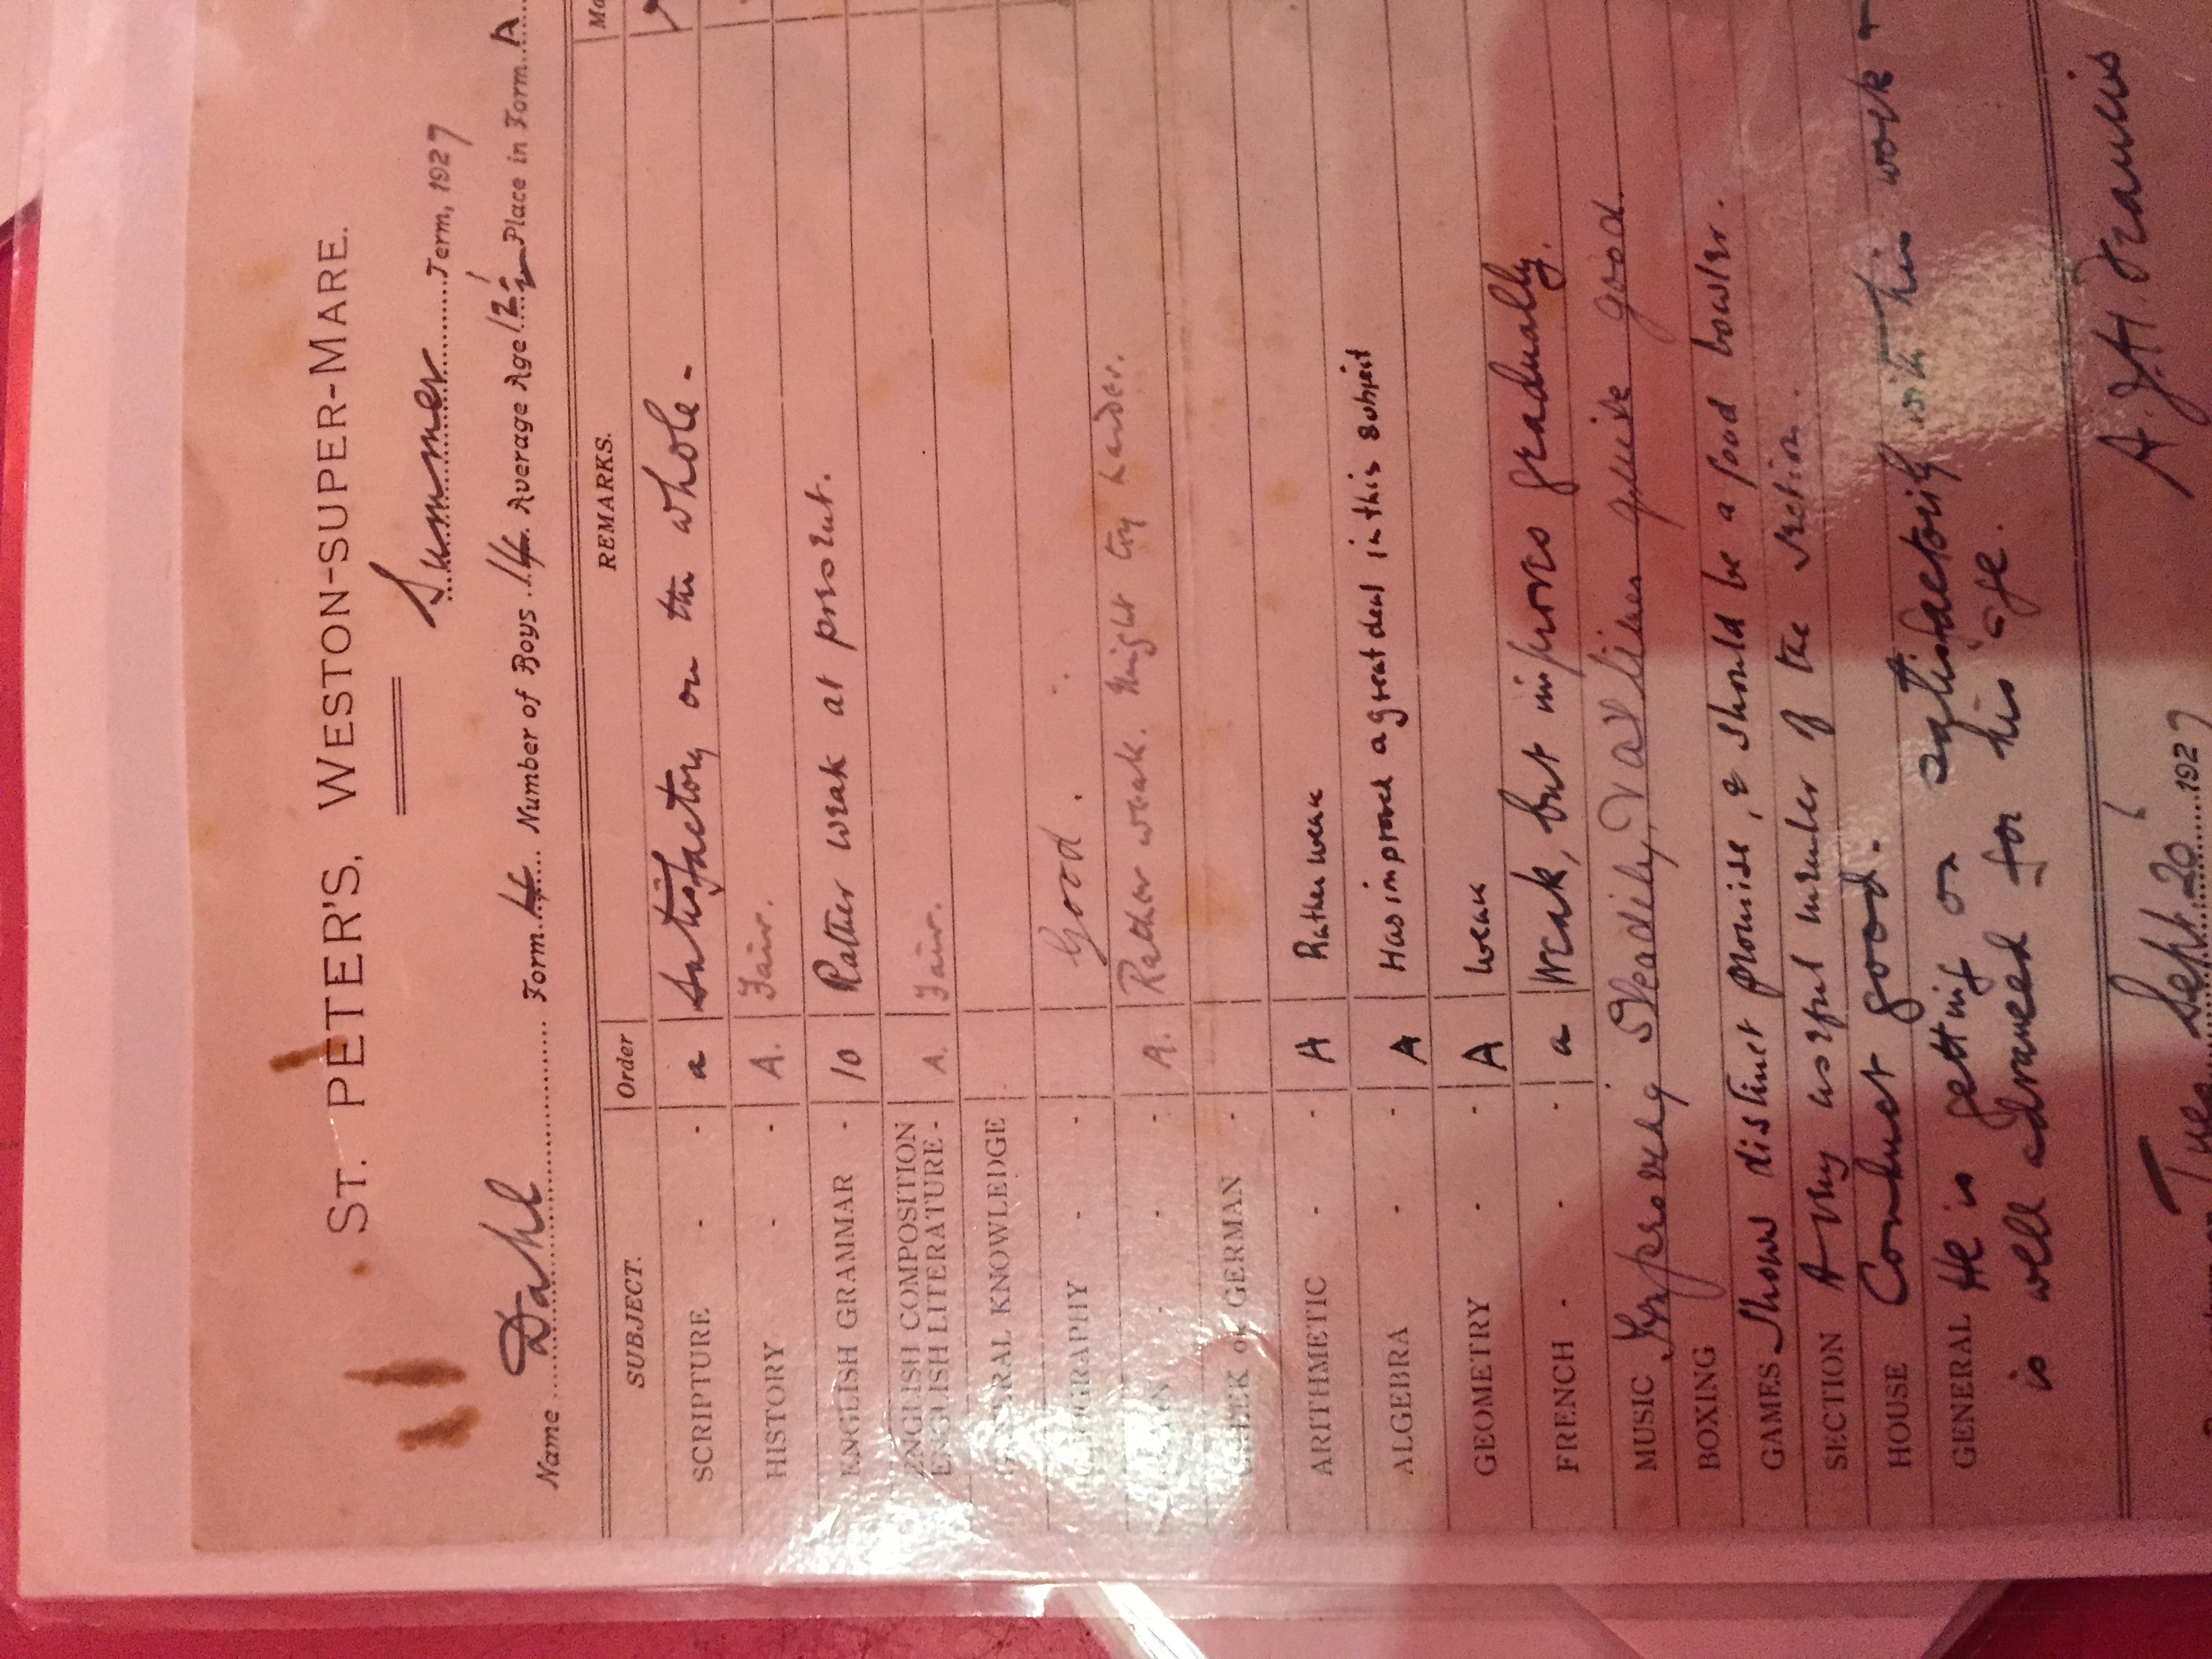 ST. PETER'S, WESTON-SUPER-MARE.
Summer Term, 1927
Name Dahl Form 4 Number of Boys 14 Average Age 12. Place in Form A
SUBJECT. Order REMARKS.
SCRIPTURE - - a Satisfactory on the whole -
HISTORY - - A. Fair.
ENGLISH GRAMMAR - 10 Rather weak at present.
ENGLISH COMPOSITION
ENGLISH LITERATURE - A. Fair.
GENERAL KNOWLEDGE
GEOGRAPHY - - Good.
- - A. Rather weak. Might try harder.
GREEK or GERMAN -
ARITHMETIC - - A Rather weak
ALGEBRA - - A Has improved a great deal in this subject
GEOMETRY - - A weak
FRENCH - - - a Weak, but improves gradually.
MUSIC Improving steadily, quite good.
BOXING
GAMES Shows distinct promise, & should be a good bowler.
SECTION A very useful member of the section.
HOUSE Conduct good.
GENERAL He is getting on satisfactorily with his work &
is well advanced for his age.
A.J.H. Francis
Tues Sept. 20 1927